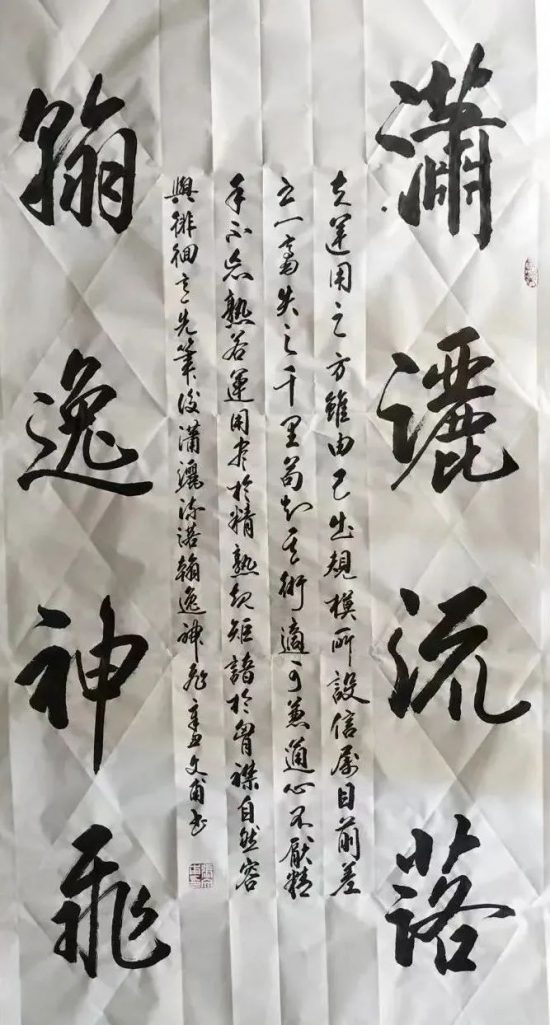 瀟灑流落
夫運用之方雖由己出規模所設信屬目前差
之一毫失之千里苟知其術適可兼通心不厭精
手不忘熟若運用盡於精熟規矩諳於胷襟自然容
與徘徊意先筆後瀟灑流落翰逸神飛辛丑文甫書
翰逸神飛